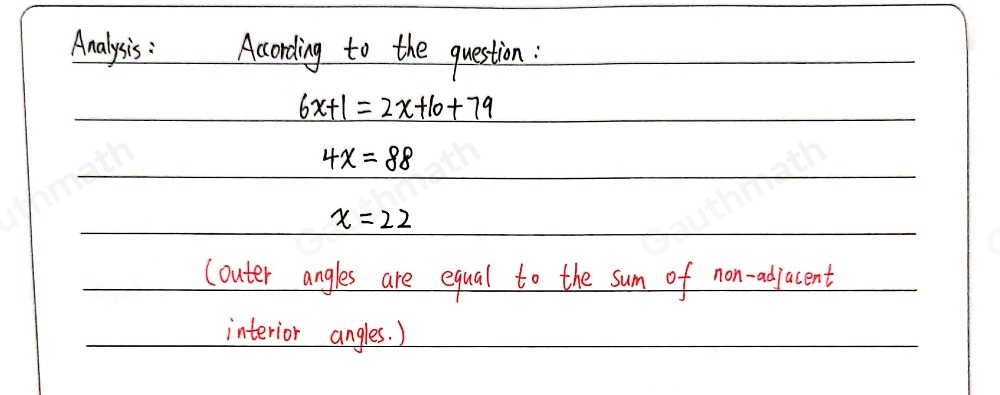 Analysis: According to the question:
6x+1=2x+10+79
4x=88
x=22
(outer angles are equal to the sum of non-adjacent
interior angles.)
Gauthmath
Gauthmath